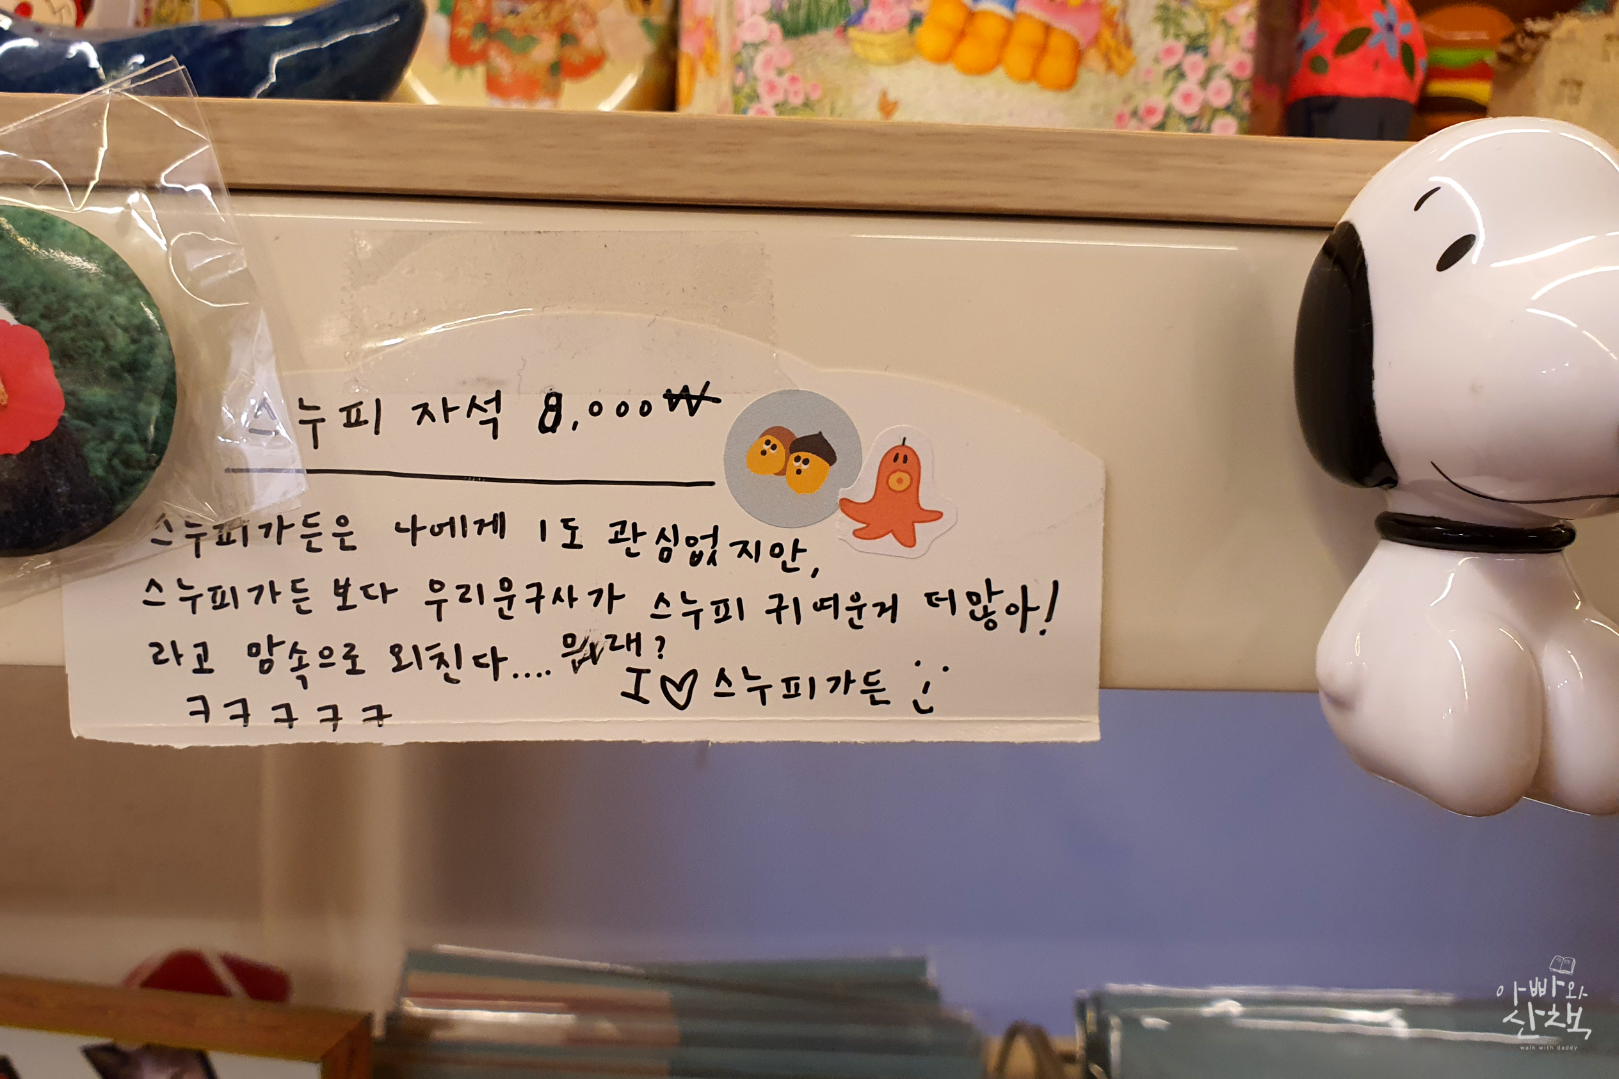 스누피 자석 8,000₩
스누피가든은 나에게 1도 관심없지만,
스누피가든 보다 우리문구사가 스누피 귀여운거 더많아!
라고 맘속으로 외친다.... 뭐래?
I♡ 스누피가든
ㅋㅋㅋㅋㅋ
아빠와
산책
walk with daddy